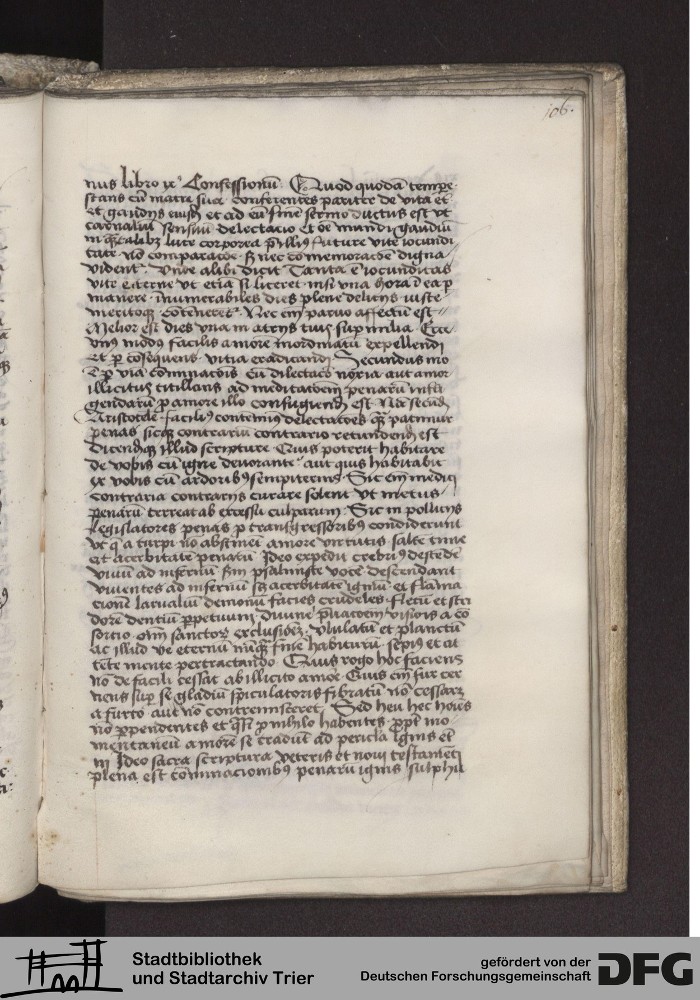 106.
nus libro ix° Confessionū. Quod quodā tempe
stans cū matre sua conferentes pariter de vita et
et gaudijs eiusdem et ad eū finē sermo ductus est vt
carnaliū sensuū delectacio et oē mundi gaudiū
in luce corporea p illius future vite iocundi
tate nō comparacōe sed nec comemoracōe digna
vident. Vnde alibi dicit Tanta ē iocunditas
vite eterne vt etiā si liceret nisi vna hora ī ea p
manere innumerabiles dies plene delicijs iuste
meritoque cōtēneret. Nec em paruo affectu est
Melior est dies vna in atrijs tuis sup milia. Ecce
vnus modus facilis amorē inordinatū expellendi
et p cōsequens vitia eradicandi. Secundus mo
d p viā cōminacōis Cū dilectacō noxia aut amor
illicitus titillans ad meditacoem penarū infli
gendarū p amore illo confugiendum est. Nā secundum
Aristotelē facilius contemnimus delectacōes quas patimur
penas sicque contrariū contrario retundendum est
dicendoque illud scripture Quis poterit habitare
de vobis cū igne deuorante aut quis habitabit
ex vobis cū ardoribus sempiternis. Sic em medici
contraria contrarijs curare solent vt metus
penarū terreat ab excessu culparum. Sic in pollicijs
legislatores penas p transgressoribus condiderunt
vt q a turpi nō abstinet amore virtutis saltē timeat
acerbitatē penarū Ideo expedit crebrius descende
viuū ad infernū scdm psalmiste vocē descendant
viuentes ad infernū scilicet acerbitatē ignium et flāma
cionē larualiū demonū facies crudeles fletū et stri
dorē dentiū ppetuum diuine priuacōem visionis a cō
sortio oīm sanctorum exclusiōes. Vlulatū et planctū
ac illud ve eternū nūquam finē habiturū sepius et at
tēte mente pertractando. Quis rogo hoc faciens
nō de facili cessat ab illicito amore. Quis em fur cer
nens super se gladiū spiculatoris vibratū nō cessaret
a furto aut nō contremisceret. Sed heu hec hoīes
nō ppendentes et quasi p nihilo habentes propter mo
mentaneū amorē se tradūt ad pericla ignis et
Ideo sacra scriptura veteris et noui testamēti
plena est cōminacionibus penarū ignis sulphu
Stadtbibliothek
und Stadtarchiv Trier
gefördert von der
Deutschen Forschungsgemeinschaft
DFG